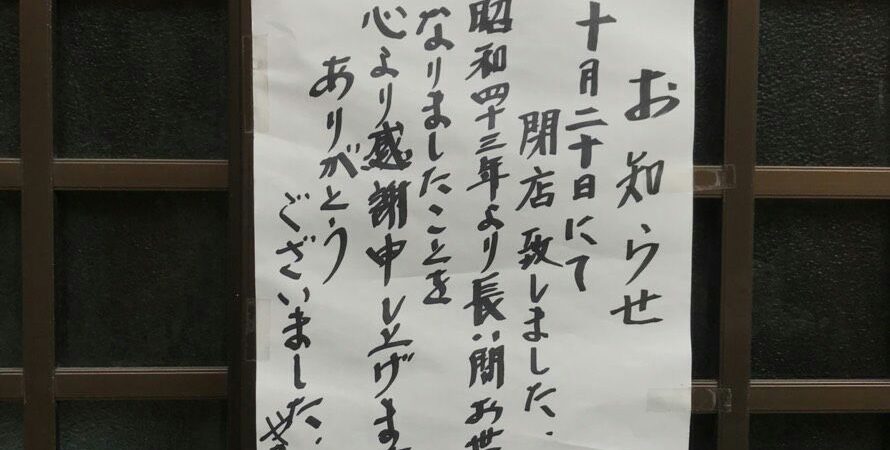 お知らせ
十月二十日にて
閉店致しました.
昭和四十三年より長い間お世
なりましたことを
心より感謝申し上げま
ありがとう
ございました.